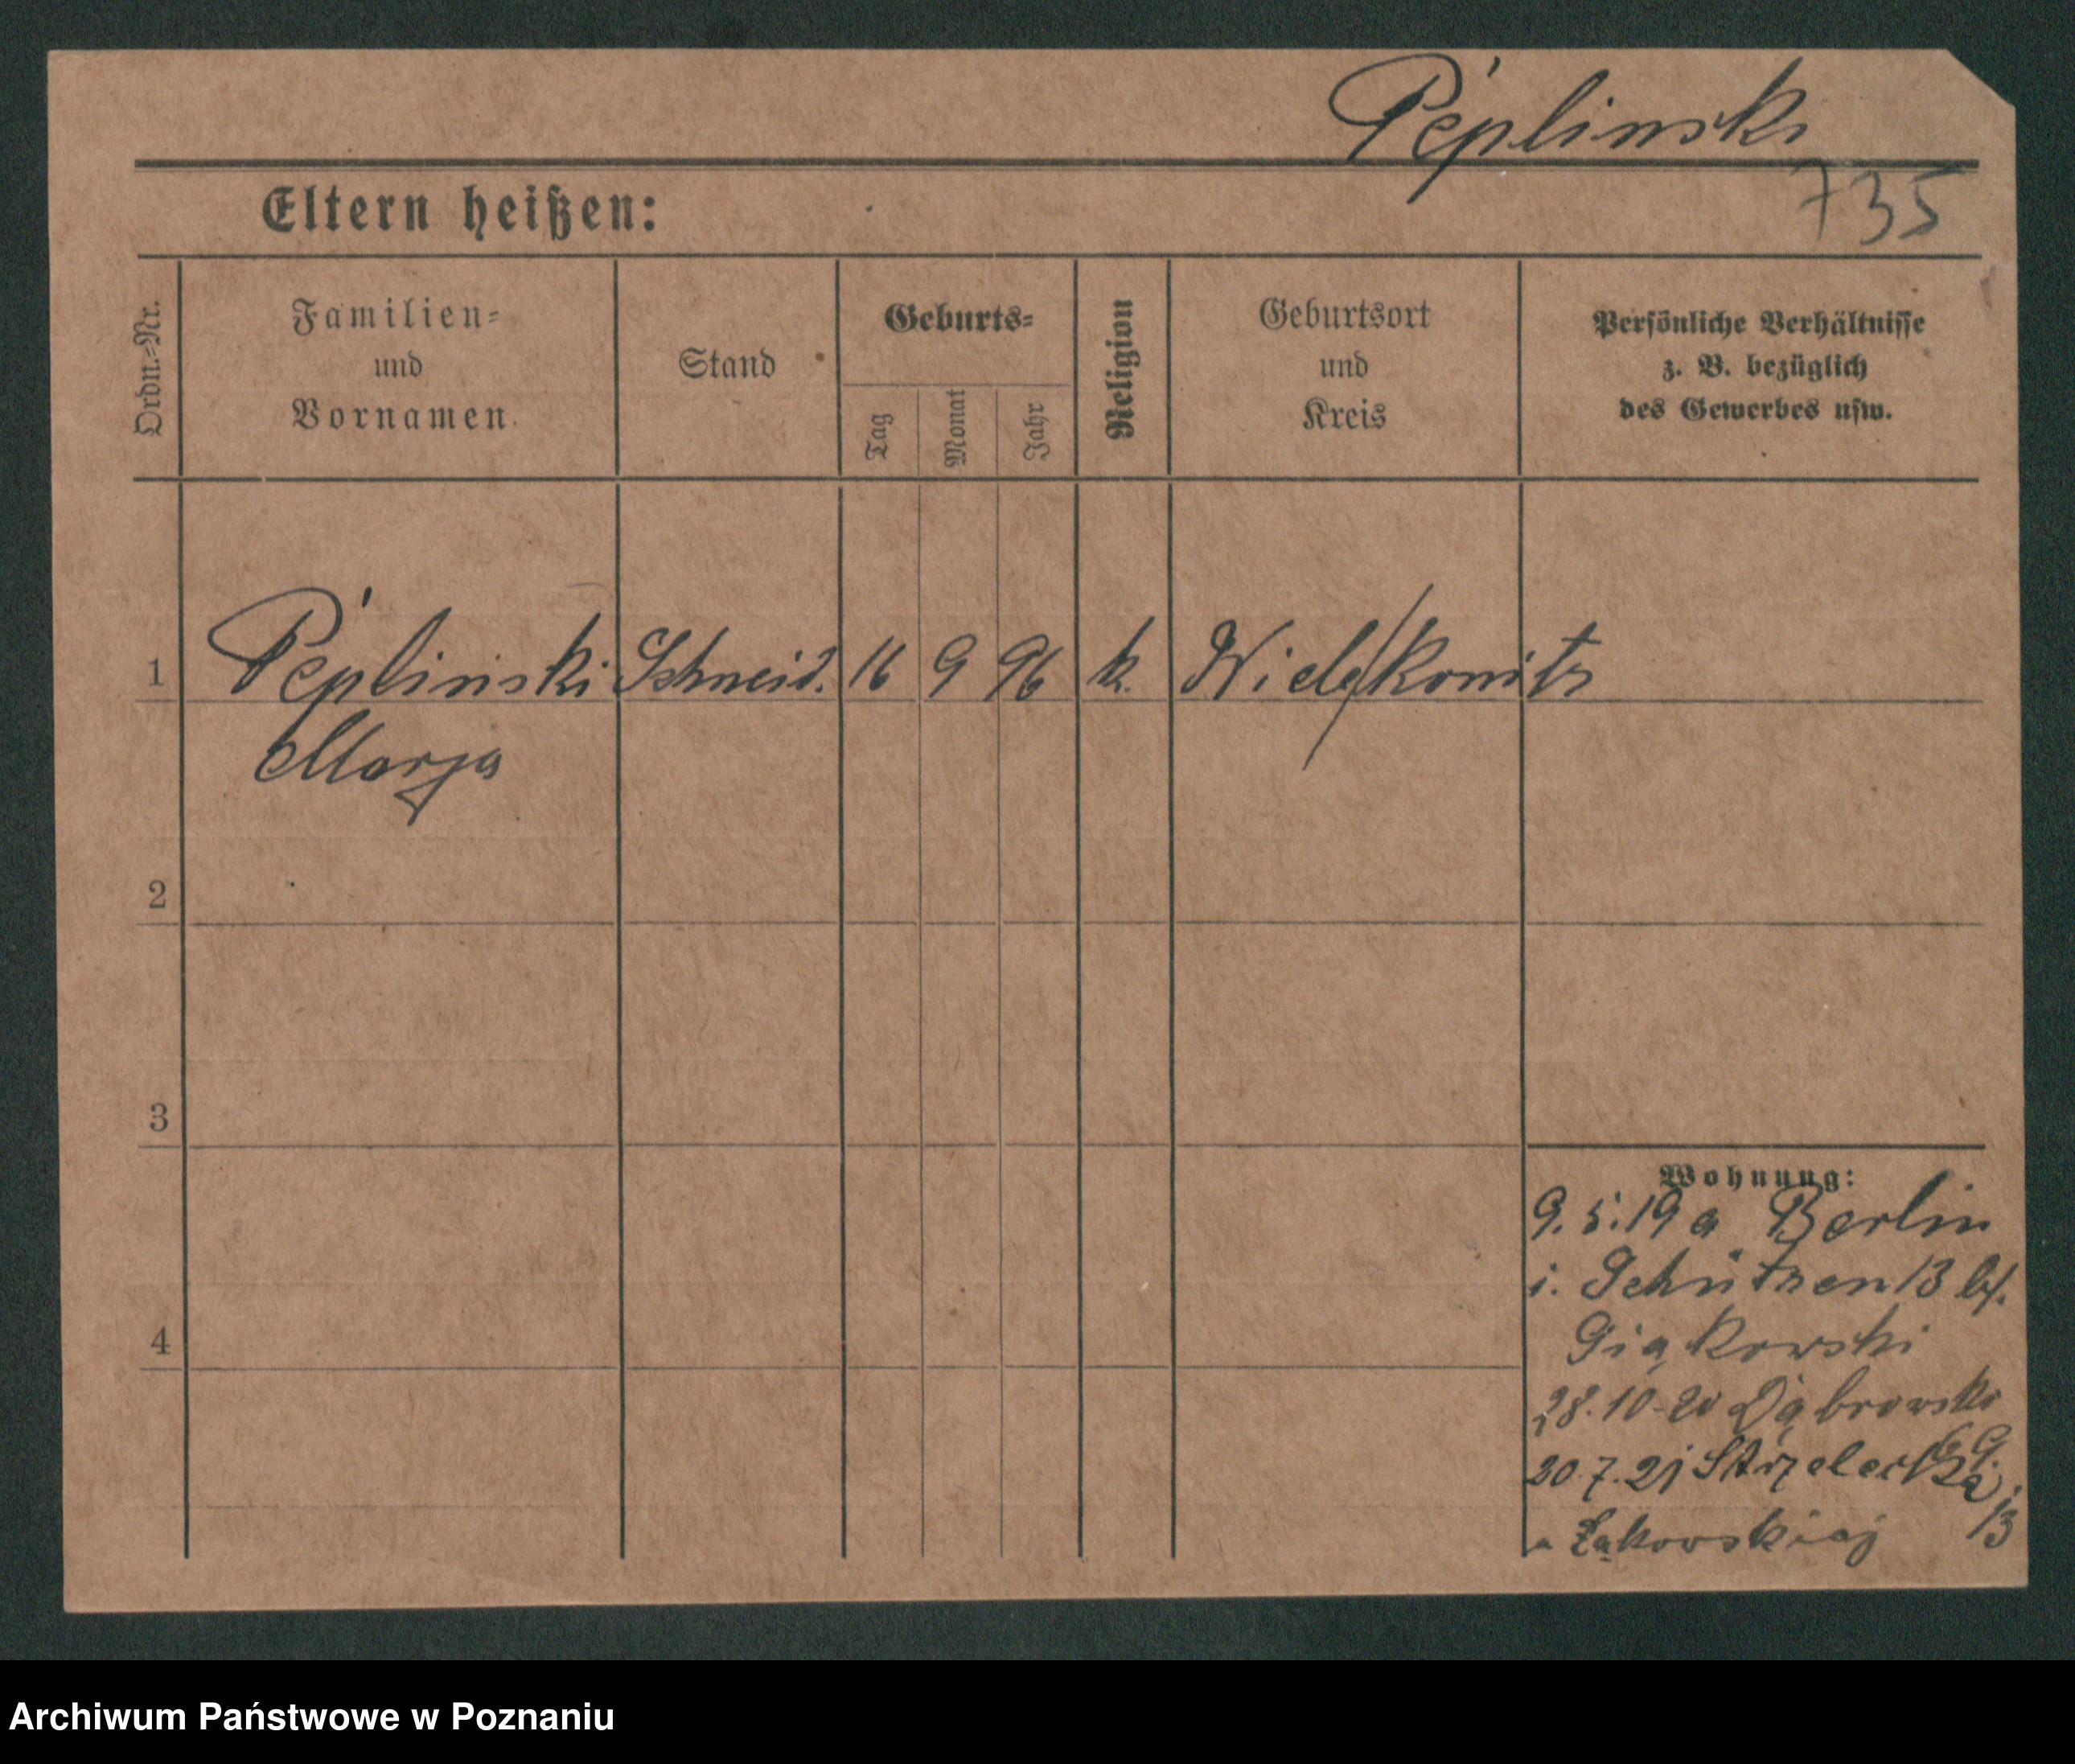 Peplinski
735
Eltern heißen:
Ordn.-Nr.
Familien-
und
Vornamen.
Stand
Geburts-
Tag
Monat
Jahr
Religion
Geburtsort
und
Kreis
Persönliche Verhältnisse
z. B. bezüglich
des Gewerbes usw.
1 Peplinski Schneid. 16 9 96 k. Wiele/Konitz
Marja
2
3
4
Wohnung:
9.5.19 a Berlin
i. Schützen 13 bf.
28.10.20 Dąbrowsk
20.7.21 Strzelecka
13
Archiwum Państwowe w Poznaniu